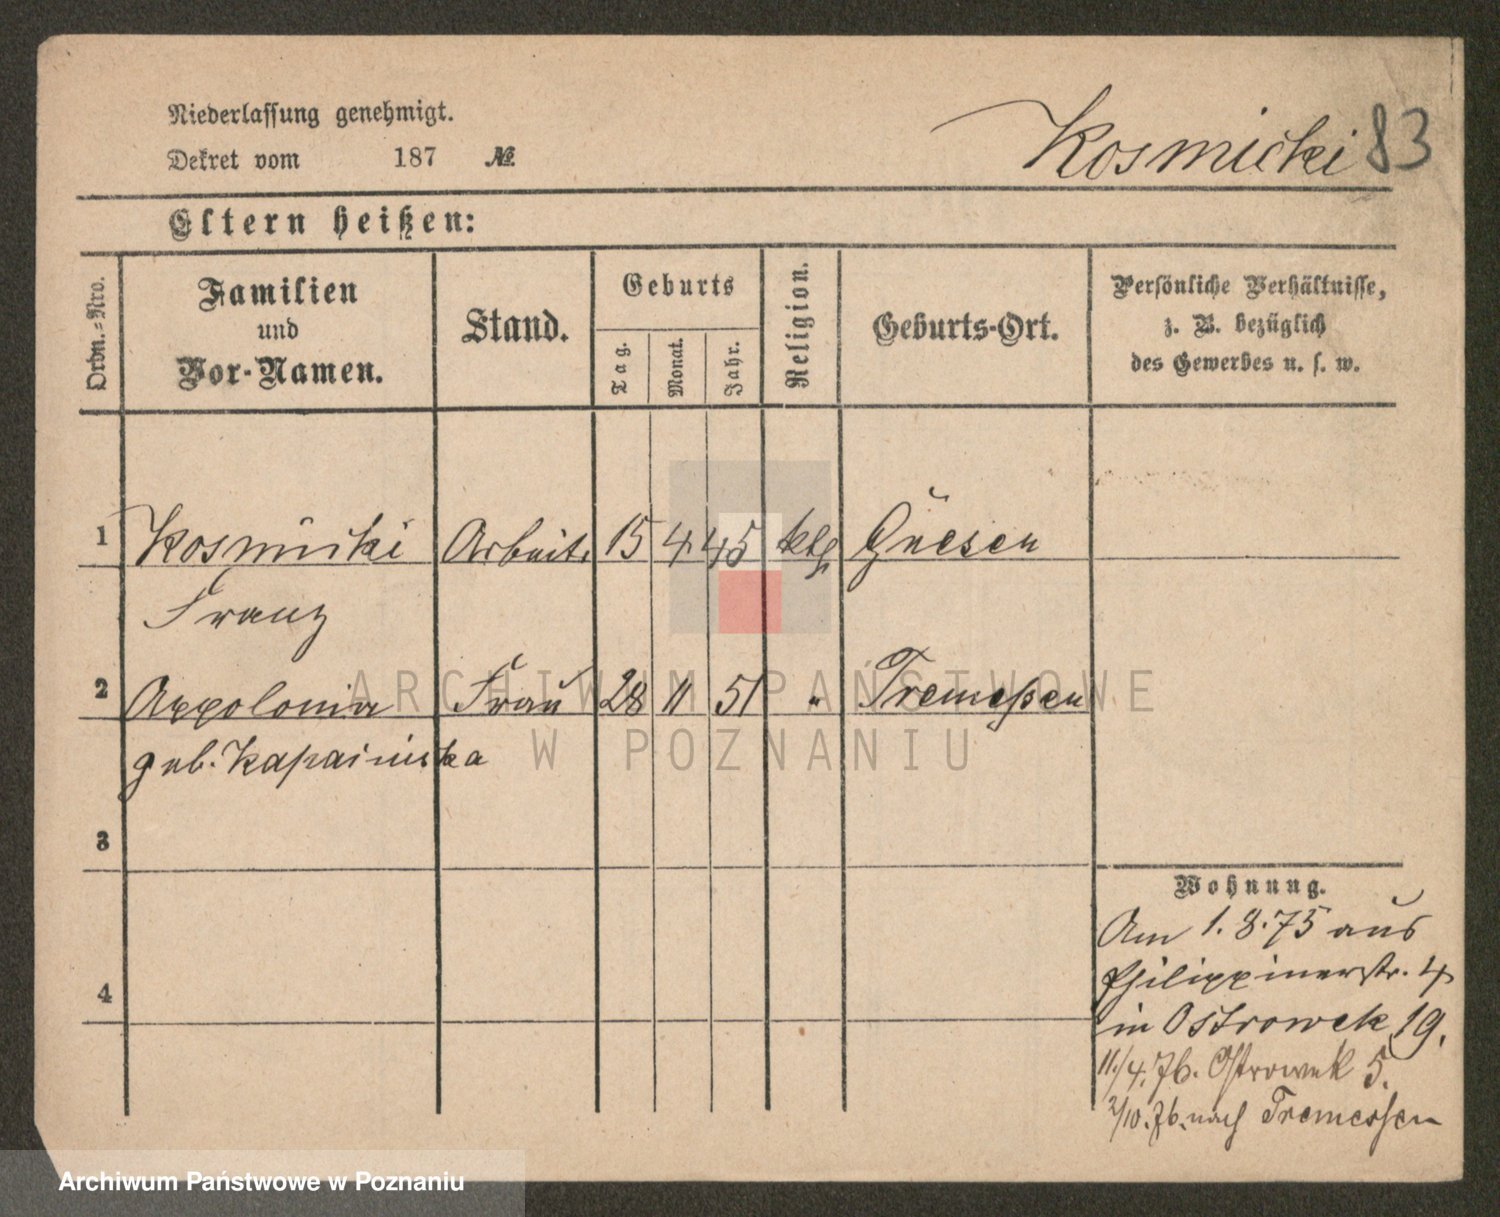 Niederlassung genehmigt.
Dekret vom 187 №
Kosmicki 83
Eltern heißen:
Ordn.=Nro.
Familien
und
Vor-Namen.
Stand.
Geburts
Tag.
Monat.
Jahr.
Religion.
Geburts-Ort.
Persönliche Verhältnisse,
z. B. bezüglich
des Gewerbes u. s. w.
1 Kosmicki Arbeit. 15 4 45 ktl Gnesen
Franz
2 Appolonia Frau 28 11 51 " Tremeßen
geb.
3
4
Wohnung.
Am 1.8.75 aus
Philippinerstr. 4
in Ostrowek 19.
11./4.76. Ostrowek 5.
2/10.76. nach Tremessen
ARCHIWUM PAŃSTWOWE
W POZNANIU
Archiwum Państwowe w Poznaniu